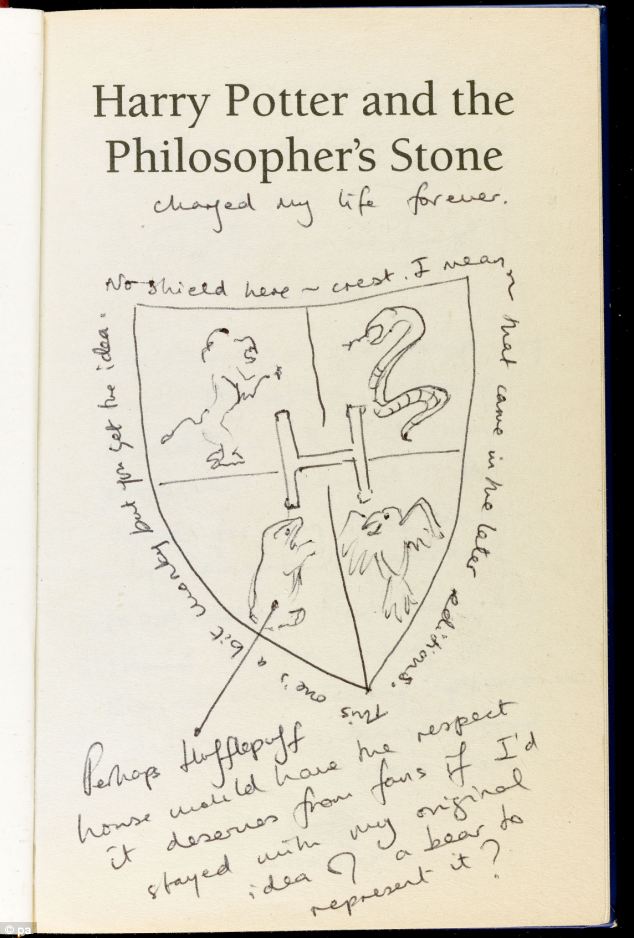 Harry Potter and the
Philosopher's Stone
changed my life forever.
No shield here – crest. I mean
that came in the later editions.
This one's a bit wonky but you get the idea.
H
Perhaps Hufflepuff
house would have the respect
it deserves from fans if I'd
stayed with my original
idea of a bear to
represent it?
© pa